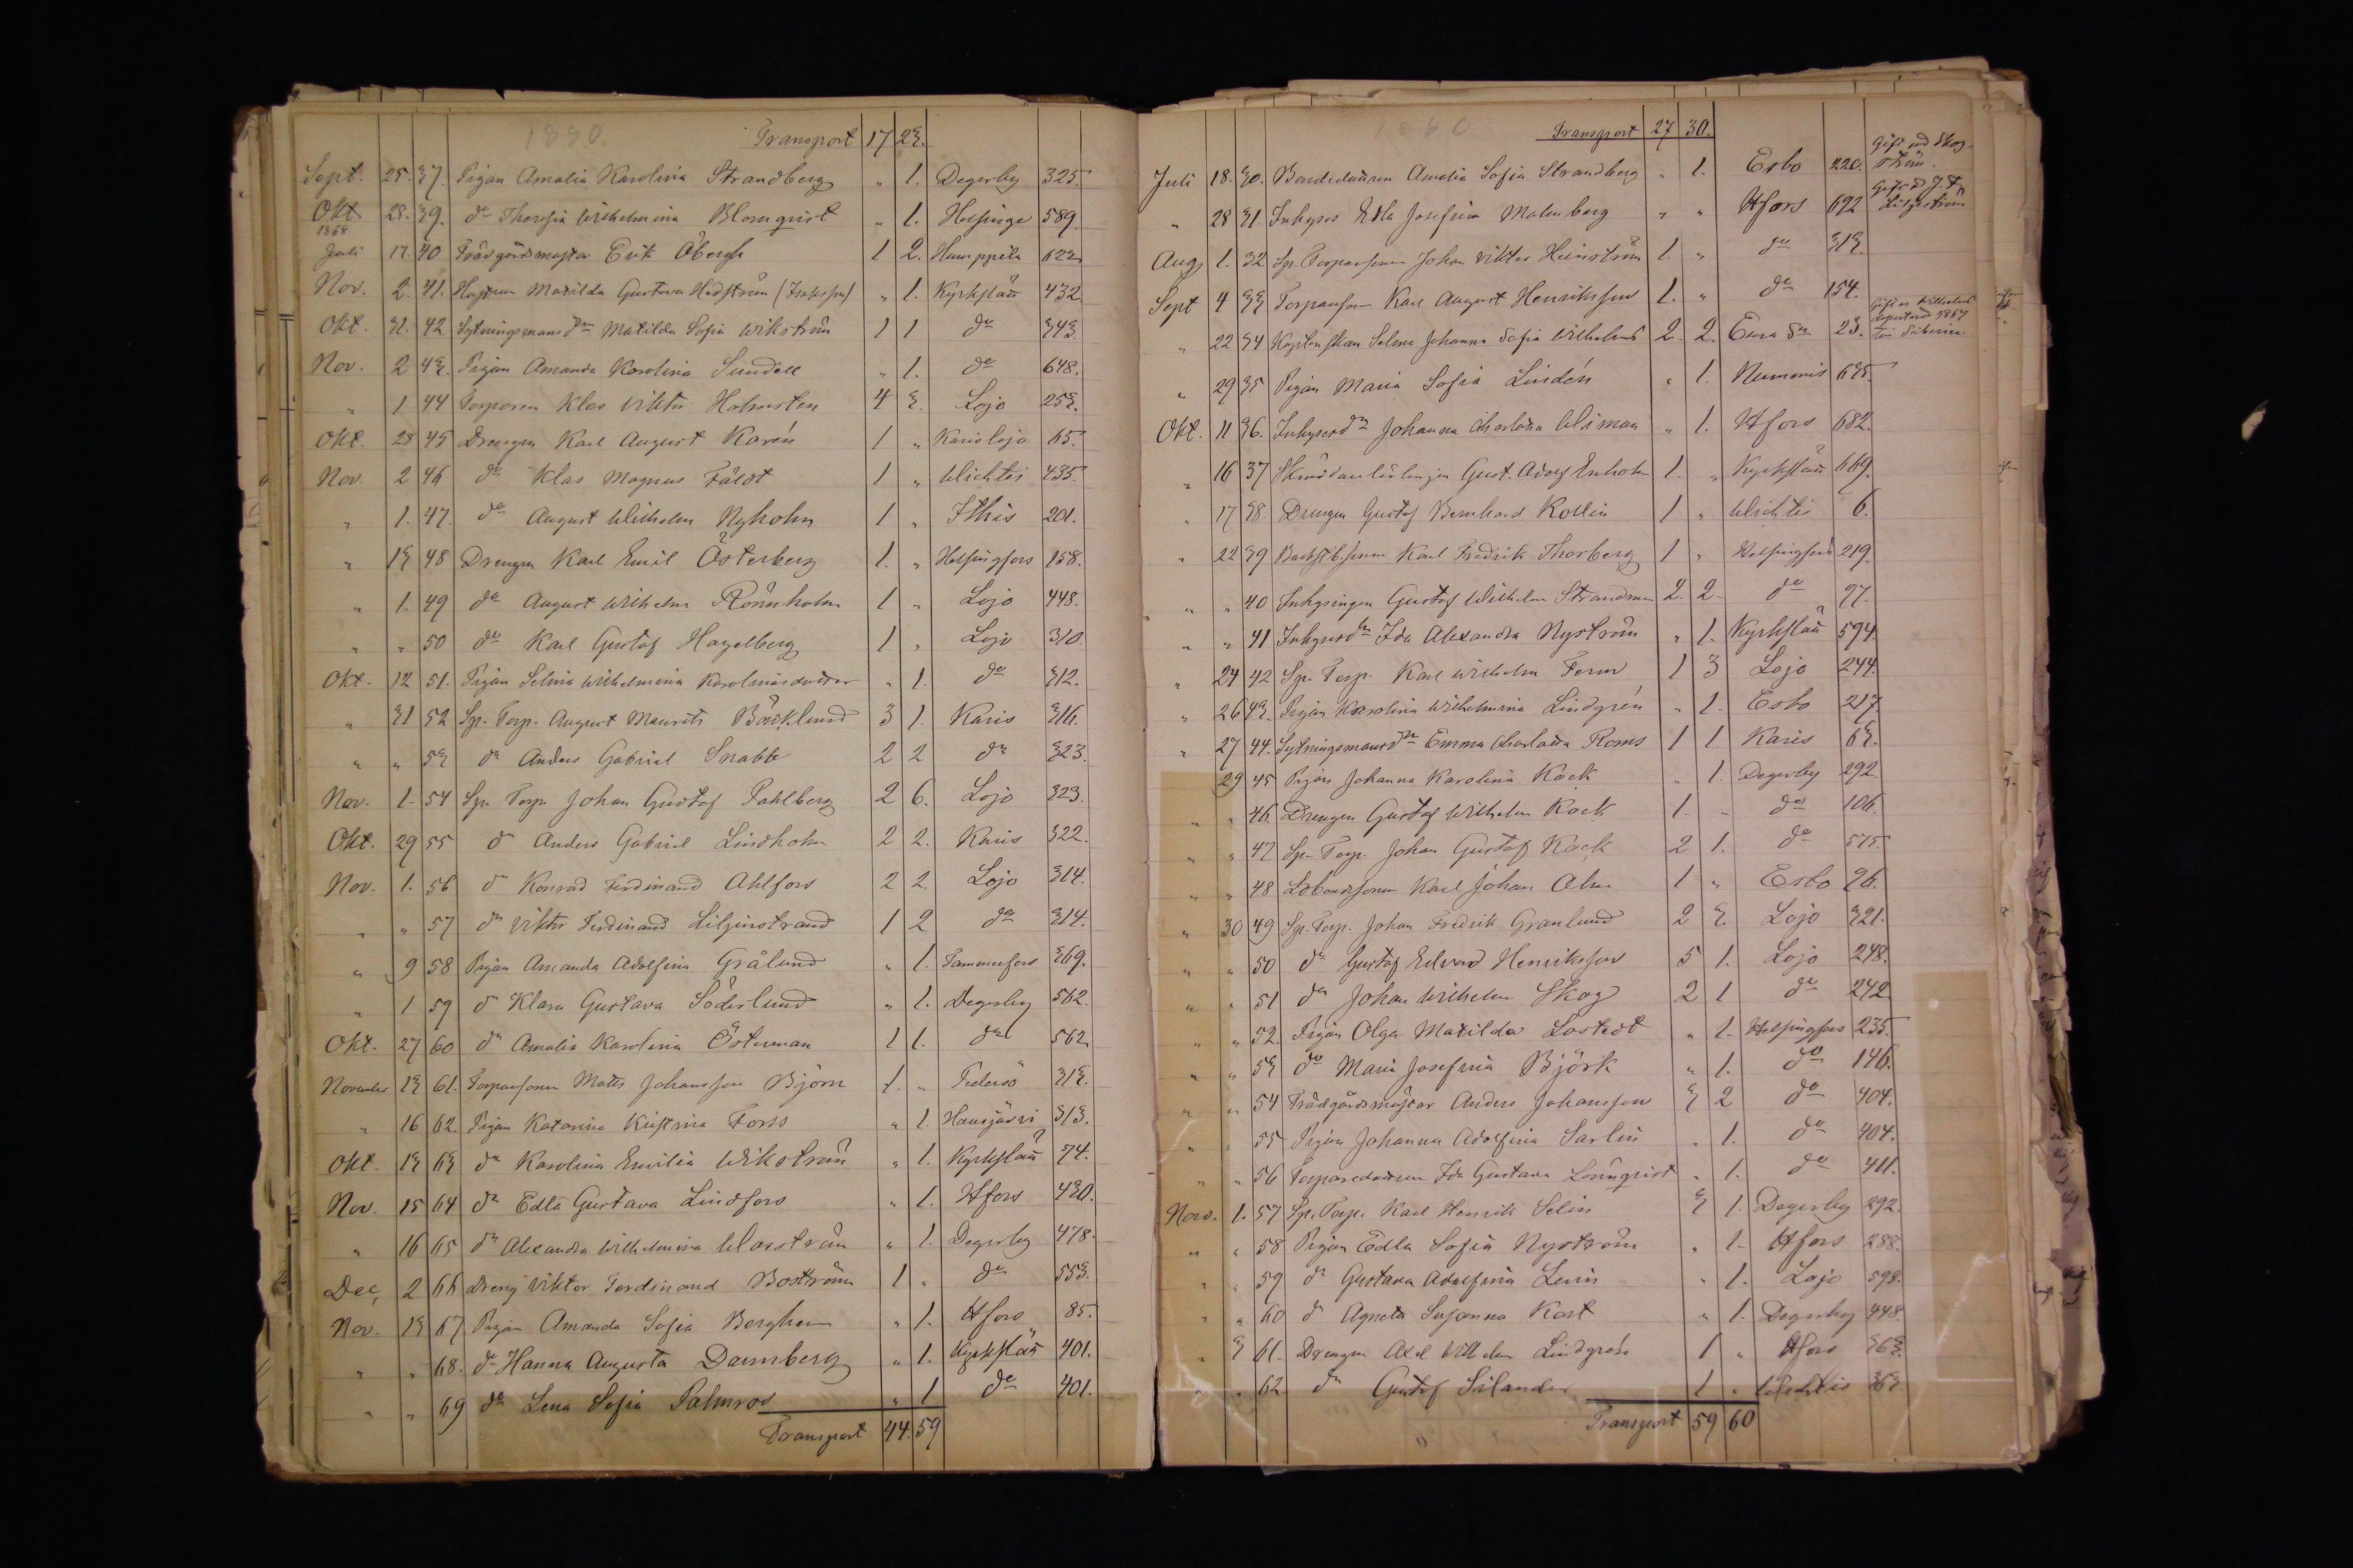 1880.
Transport 17 23.
Sept. 25. 37. Pigan Amalia Karolina Strandberg " 1. Degerby 325.
Okt 28. 39. do Theresia Wilhelmina Blomquist " 1. Helsinge 589.
1868
Juli 17. 40 Trädgårdsmästar Erik Öbergh 1 2. Humppila 622
Nov. 2. 41. Matilda Gustava Hedström " 1. Kyrkslätt 432.
Okt. 31. 42 Sytningsmans dn Matilda Sofia Wikström 1 1 do 343.
Nov. 2 43. Pigan Amanda Karolina Sundell " 1. do 648.
" 1 44 Torparen Klas Viktor Holmsten 4 3. Lojo 253.
Okt. 28 45 Drengen Karl August Karén 1 " Karislojo 65.
Nov. 2 46 do Klas Magnus Fäldt 1 " Wichtis 435.
" 1. 47. do August Wilhelm Nyholm 1 " Ithis 201.
" 13 48 Drengen Karl Emil Österberg 1. " Helsingfors 158.
" 1. 49 do August Wilhelm Rönnholm 1 " Lojo 448.
" " 50 do Karl Gustaf Hagelberg 1 " Lojo 310
Okt. 12 51. Pigan Selma Wilhelmina Karolinasdotter " 1. do 312.
" 31 52 Sp. Torp. August Maurits Bäcklund 3 1. Karis 316.
" " 53 do Anders Gabriel Snabb 2 2 do 323.
Nov. 1. 54 Sp. Torp. Johan Gustaf Pahlberg 2 6. Lojo 323.
Okt. 29 55 do Anders Gabriel Lindholm 2 2. Karis 322.
Nov. 1. 56 do Konrad Ferdinand Ahlfors 2 2. Lojo 314.
" " 57 do Viktor Ferdinand Liljenstrand 1 2 do 314.
" 9 58 Pigan Amanda Adolfina Grålund " 1. Tammerfors 369.
" 1 59 do Klara Gustava Söderlund " 1. Degerby 562.
Okt. 27 60 do Amalia Karolina Österman 1 1. do 562.
November 13 61. Torparesonen Mats Johansson Björn 1. " Pedersö 313.
" 16 62 Pigan Katarina Kristina Forss " 1. Hausjärvi 313.
Okt. 13 63 do Karolina Emilia Wikström " 1. Kyrkslätt 74.
Nov. 15 64 do Edla Gustava Lindfors " 1. Hfors 430.
" 16 65 do Alexandra Wilhelmina " 1. Degerby 478.
Dec, 2 66 Dreng Viktor Ferdinand Boström 1 " do 553.
Nov. 13 67 Pigan Amanda Sofia Berghem " 1. Hfors 85.
" " 68. do Hanna Augusta Dannberg " 1. Kyrkslätt 401.
" " 69 do Lena Sofia Palmros " 1 do 401.
Transport 44. 59
1880
Transport 27 30.
Juli 18. 30. Bondedottren Amalia Sofia Strandberg " 1. Esbo 220. Gift med Skogström.
" 28 31 Inhyses Edla Josefina Malmberg " " Hfors 692
Aug 1. 32 Sp. Torparsonen Johan Viktor Heinström 1. " do 313.
Sept 4 33 Torpareson Karl August Henriksson 1. " do 154.
" 22 34 Selma Johanna Sofia Wilhelms 2. 2. 23.
" 29 35 Pigan Maria Sofia Lindén " 1. Nummis 635.
Okt. 11 36. Inhyses dn Johanna Charlotta Wiman " 1. Hfors 682.
" 16 37 Skräddarlärlingen Gust. Adolf Enholm 1. " Kyrkslätt 669.
" 17 38. Drengen Gustaf Bernhard Kollin 1 " Wichtis 6.
" 22 39 Karl Fredrik Thorberg 1 " Helsingfors 219.
" " 40 Inhysingen Gustaf Wilhelm Strandman 2. 2. do 97.
" " 41 Inhyses dn Ida Alexandra Nyström " 1. Kyrkslätt 594
" 24 42 Sp. Torp. Karl Wilhelm Form 1 3 Lojo 244.
" 26 43. Pigan Karolina Wilhelmina Lindgrén " 1. Esbo 217.
" 27 44. Sytningsmans dn Emma Charlotta Roms 1 1 Karis 63.
29 45 Pigan Johanna Karolina Kock " 1. Degerby 292.
" " 46 Drengen Gustaf Wilhelm Kock 1. " do 106
" " 47 Sp. Torp. Johan Gustaf Kock 2 1. do 575.
" " 48 Karl Johan Alm 1 " Esbo 26.
" 30 49 Sp. Torp. Johan Fredrik Granlund 2 3. Lojo 321.
" " 50 do Gustaf Edvard Henriksson 5 1. Lojo 248.
" " 51 do Johan Wilhelm Skog 2 1 do 242
" " 52. Pigan Olga Matilda Lostedt " 1. Helsingfors 235.
" " 53 do Maria Josefina Björk " 1. do 146.
" " 54 Trädgårdsmästar Anders Johansson 3 2 do 404.
" " 55 Pigan Johanna Adolfina Sarlin " 1. do 404.
" " 56 Torparedottren Ida Gustava Lönnqvist " 1. do 411.
Nov. 1. 57 Sp. Torp. Karl Henrik Selin 3 1. Degerby 292.
" " 58 Pigan Edla Sofia Nyström " 1. Hfors 288.
" " 59 do Gustava Adolfina Levin " 1. Lojo 598.
" " 60 do Agneta Susanna Kort " 1. Degerby 448.
" 3 61. Drengen Axel Wilhelm Lindgrén 1 " Hfors 363.
" " 62 do Gustaf Silander 1 " Wichtis 363.
Transport 59 60